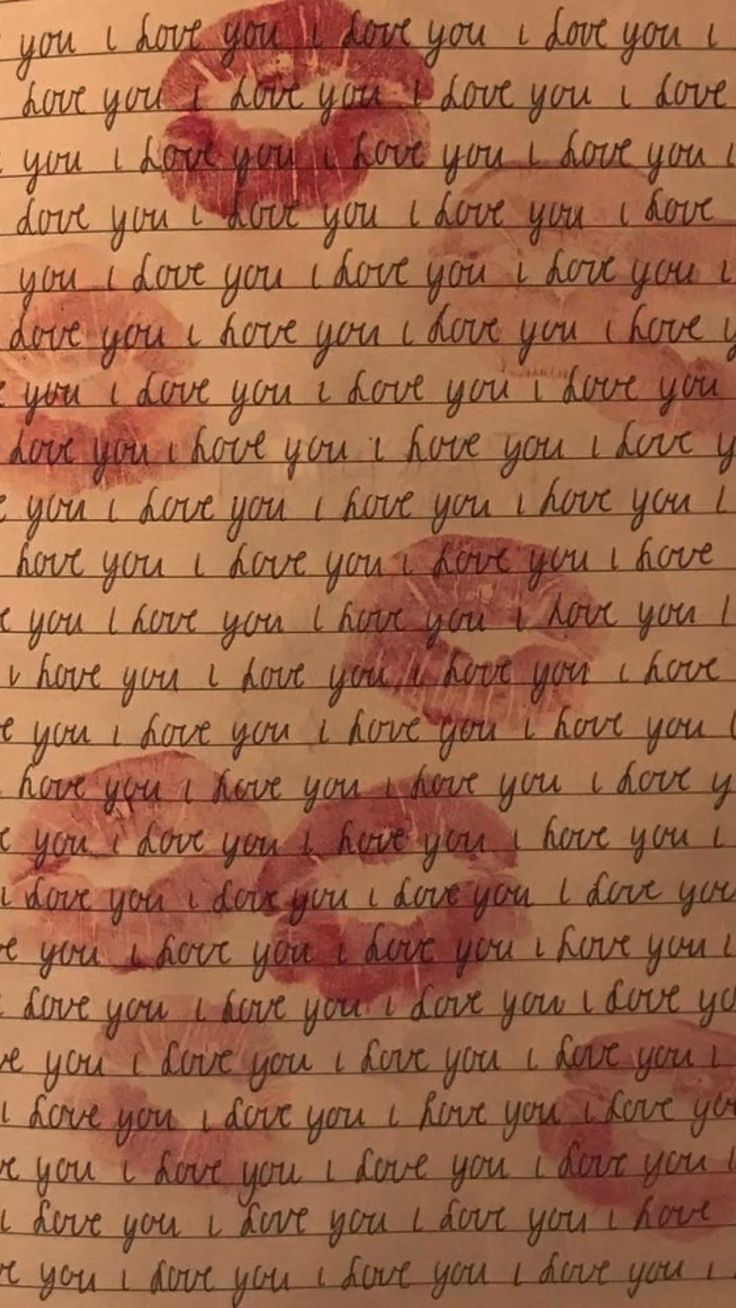 you i love you i love you i love you i
love you i love you i love you i love
you i love you i love you i love you i
love you i love you i love you i love
you i love you i love you i love you i
love you i love you i love you i love y
e you i love you i love you i love you
love you i love you i love you i love y
e you i love you i love you i love you i
love you i love you i love you i love
e you i love you i love you i love you i
i love you i love you i love you i love
e you i love you i love you i love you i
love you i love you i love you i love y
e you i love you i love you i love you i
i love you i love you i love you i love you
e you i love you i love you i love you i
love you i love you i love you i love yo
ve you i love you i love you i love you i
i love you i love you i love you i love you
e you i love you i love you i love you i
i love you i love you i love you i love
e you i love you i love you i love you i